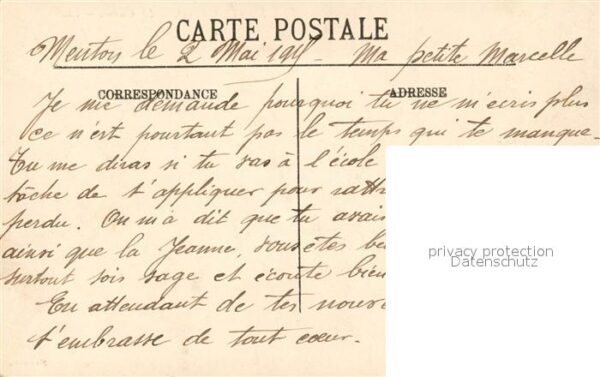 CARTE POSTALE
Menton le 2 Mai 1915 - Ma petite Marcelle
CORRESPONDANCE ADRESSE
Je me demande pourquoi tu ne m'ecris plus
ce n'est pourtant pas le temps qui te manque.
Tu me diras si tu vas à l'école
tâche de t'appliquer pour rattr
perdu. On m'a dit que tu avais
ainsi que la Jeanne, vous êtes be
surtout sois sage et écoute bien
privacy protection
Datenschutz
En attendant de tes nouve
t'embrasse de tout cœur.